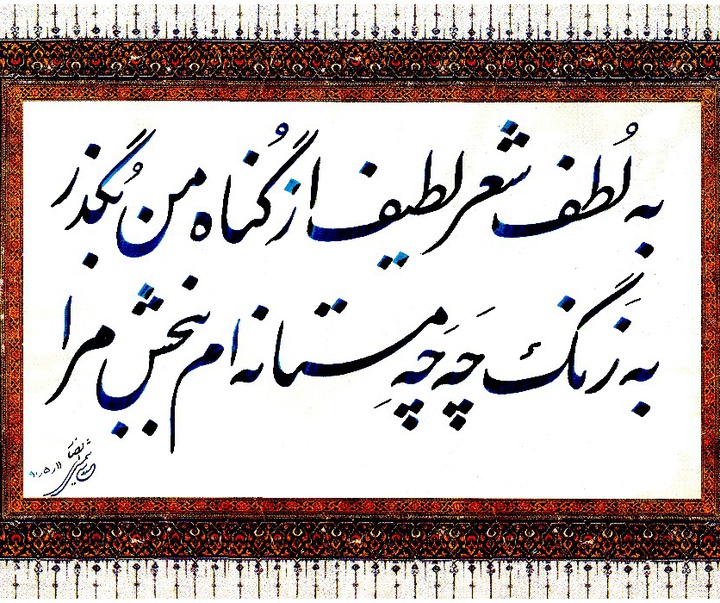 به لُطف شعر لطیف از گُناه من بُگذر
به زَنگ چَه چَهِ مستانه ام ببخش مرا
۹۰٫۵٫۱۱